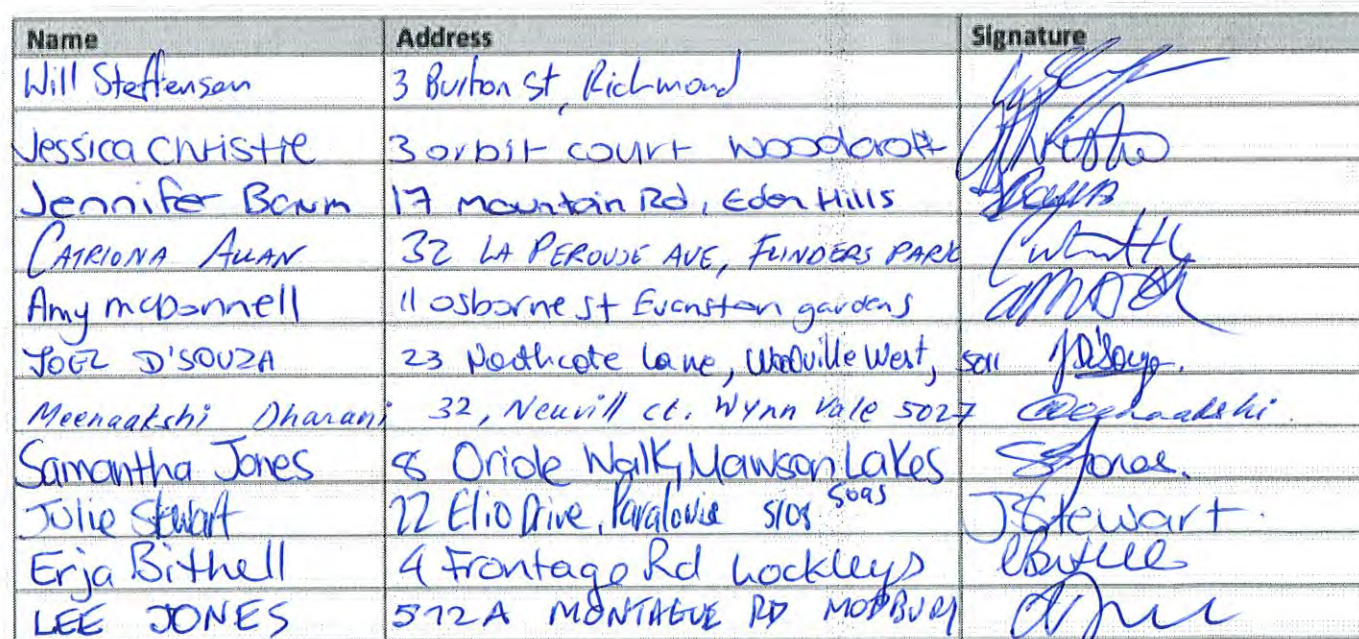 Name Address Signature
Will Steffensen 3 Burton St, Richmond
Jessica Christie 3 orbit court Woodcroft
Jennifer Baum 17 Mountain Rd, Eden Hills
CATRIONA ALLAN 32 LA PEROUSE AVE, FLINDERS PARK
Amy McDonnell 11 Osborne st Evanston gardens
JOEL D'SOUZA 23 Northcote Lane, Woodville West, 5011 JD'Souza.
Meenaakshi Dharani 32, Neuvill ct. Wynn Vale 5027 Meenaakshi.
Samantha Jones 8 Oriole Walk, Mawson Lakes SJones.
Julie Stewart 22 Elio Drive, Paralowie 5108 J Stewart.
Erja Bithell 4 Frontage Rd Lockleys EBithell
LEE JONES 572A MONTAGUE RD MODBURY